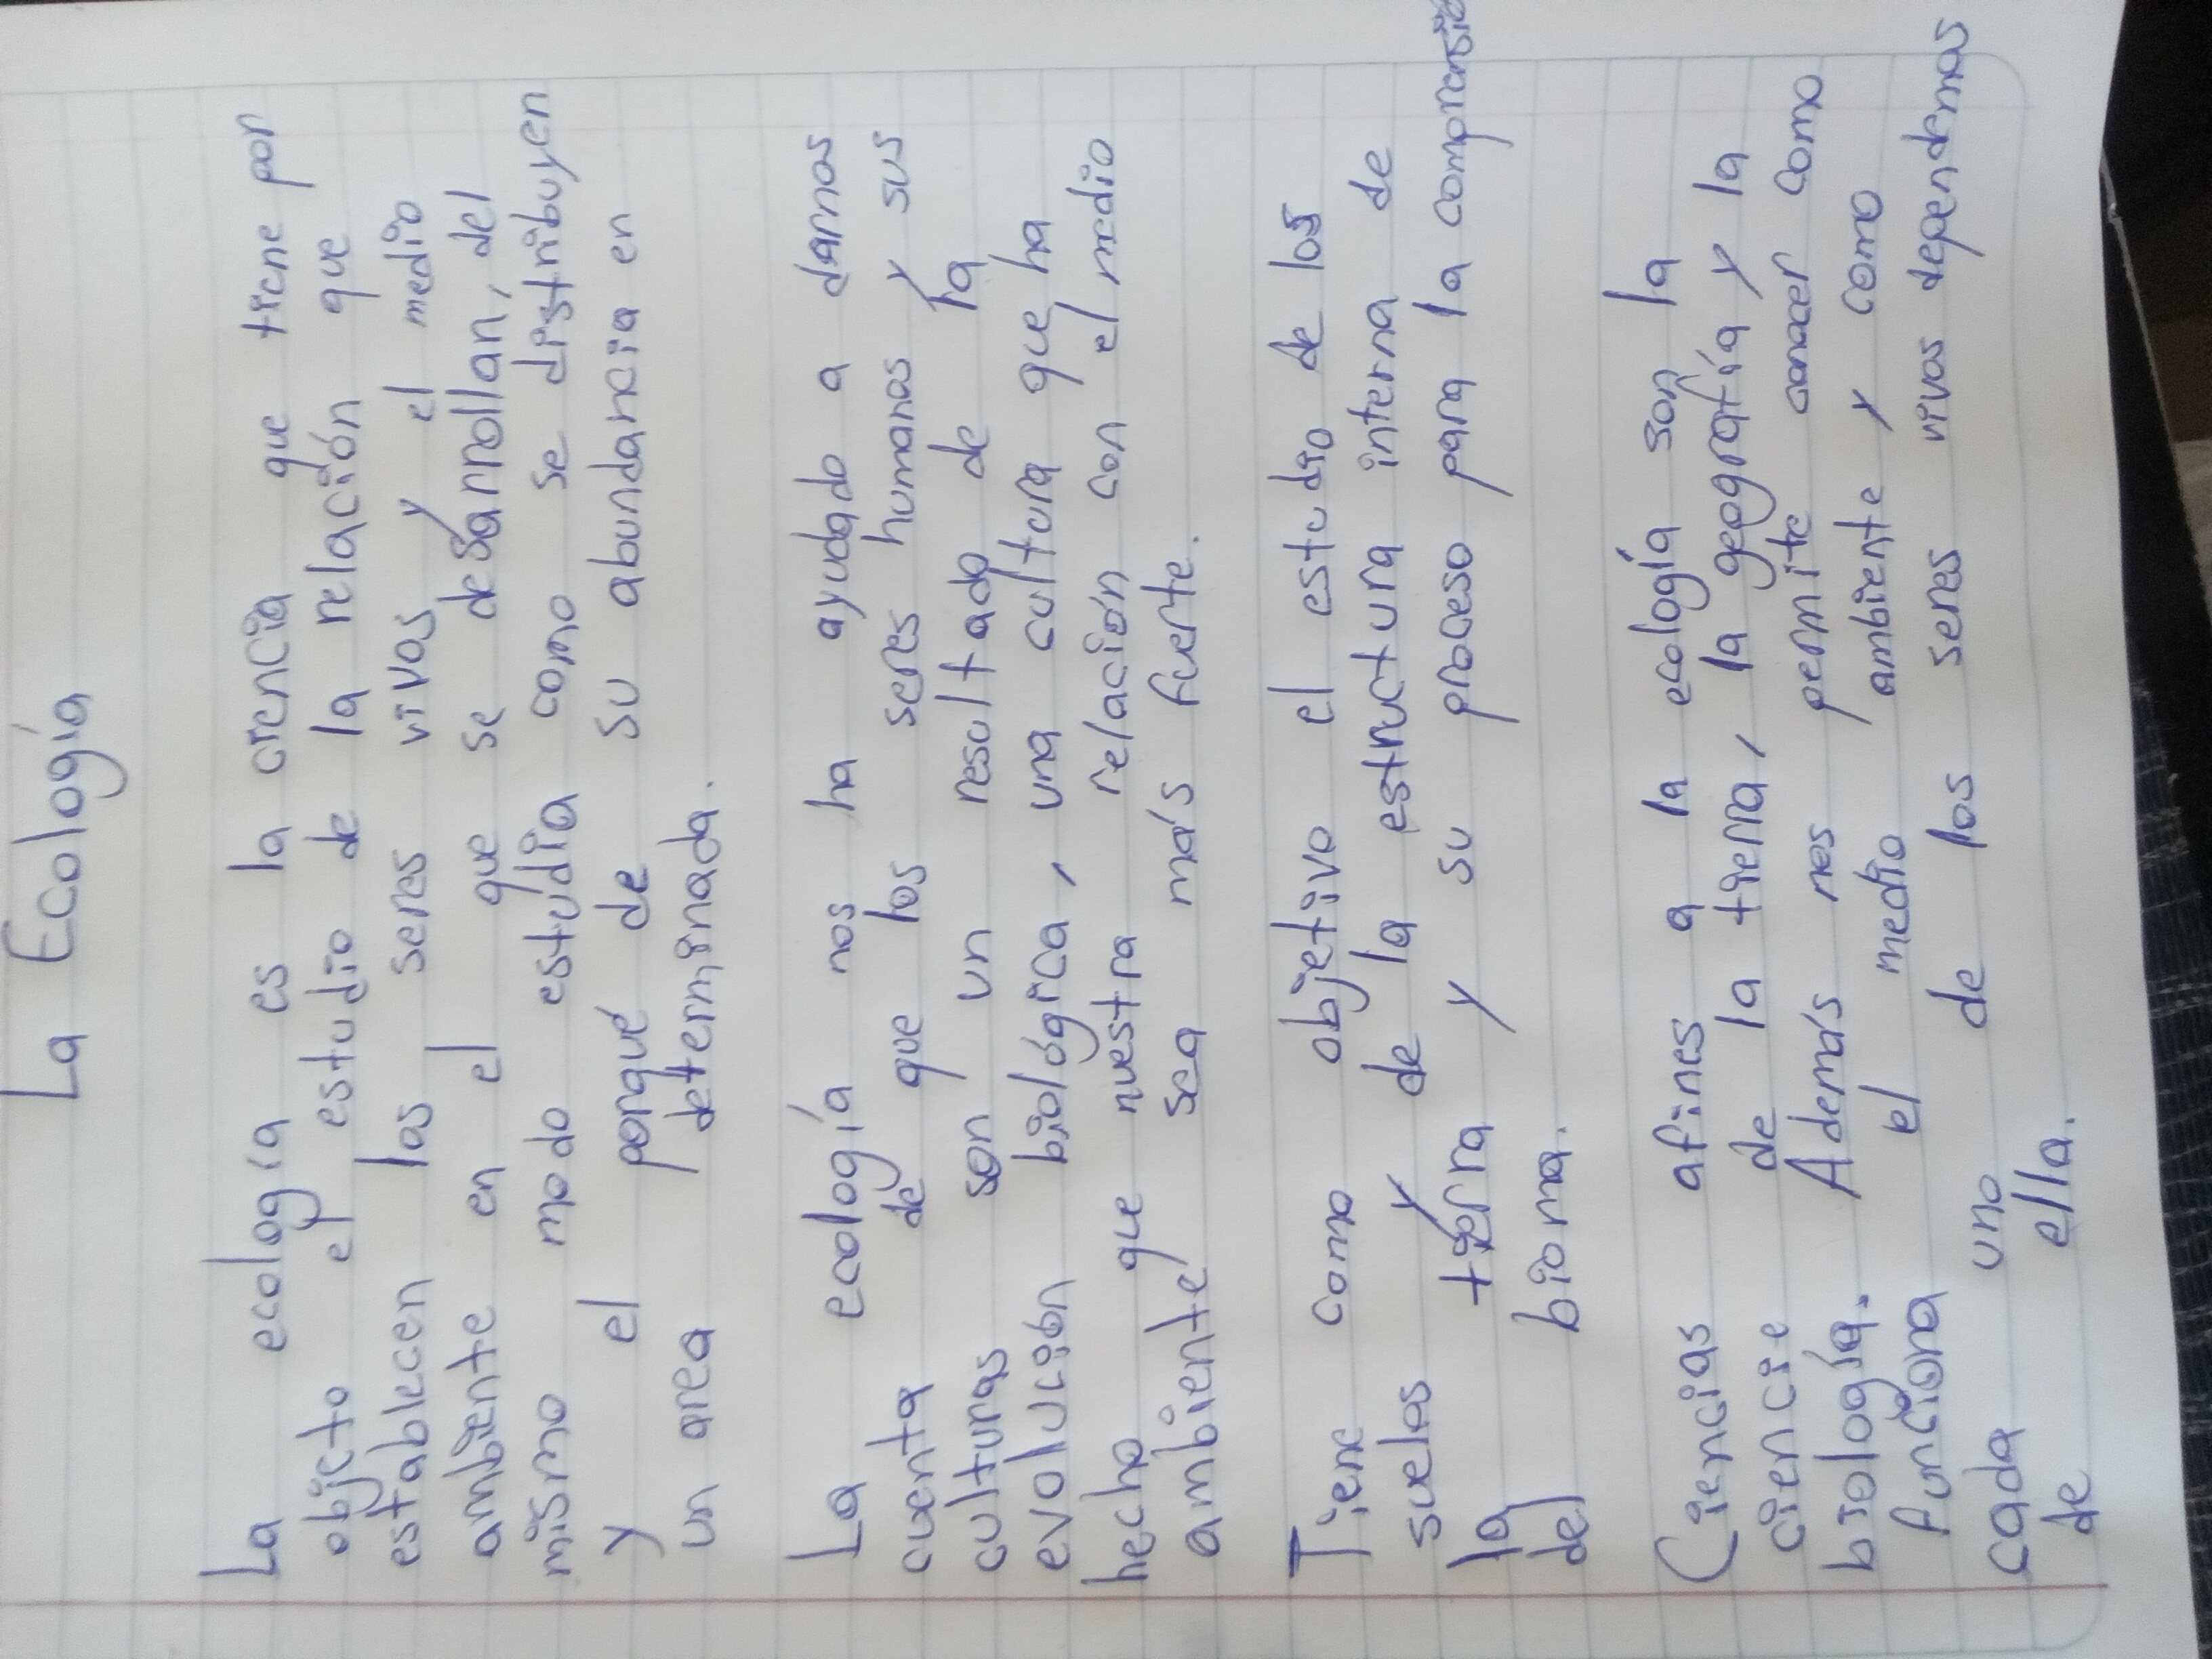 La Ecología
La ecología es la ciencia que tiene por
objeto el estudio de la relación que
establecen los seres vivos y el medio
ambiente en el que se desarrollan, del
mismo modo estudia como se distribuyen
y el porqué de su abundancia en
un area determinada.
La ecología nos ha ayudado a darnos
cuenta de que los seres humanos y sus
culturas son un resultado de la
evolución biológica, una cultura que ha
hecho que nuestra relación con el medio
ambiente sea más fuerte.
Tiene como objetivo el estudio de los
suelos y de la estructura interna de
la tierra y su proceso para la comprensió
del bioma.
Ciencias afines a la ecología son la
ciencie de la tierra, la geografía y la
biología. Además nos permite conocer como
funciona el medio ambiente y como
cada uno de los seres vivos dependemos
de ella.